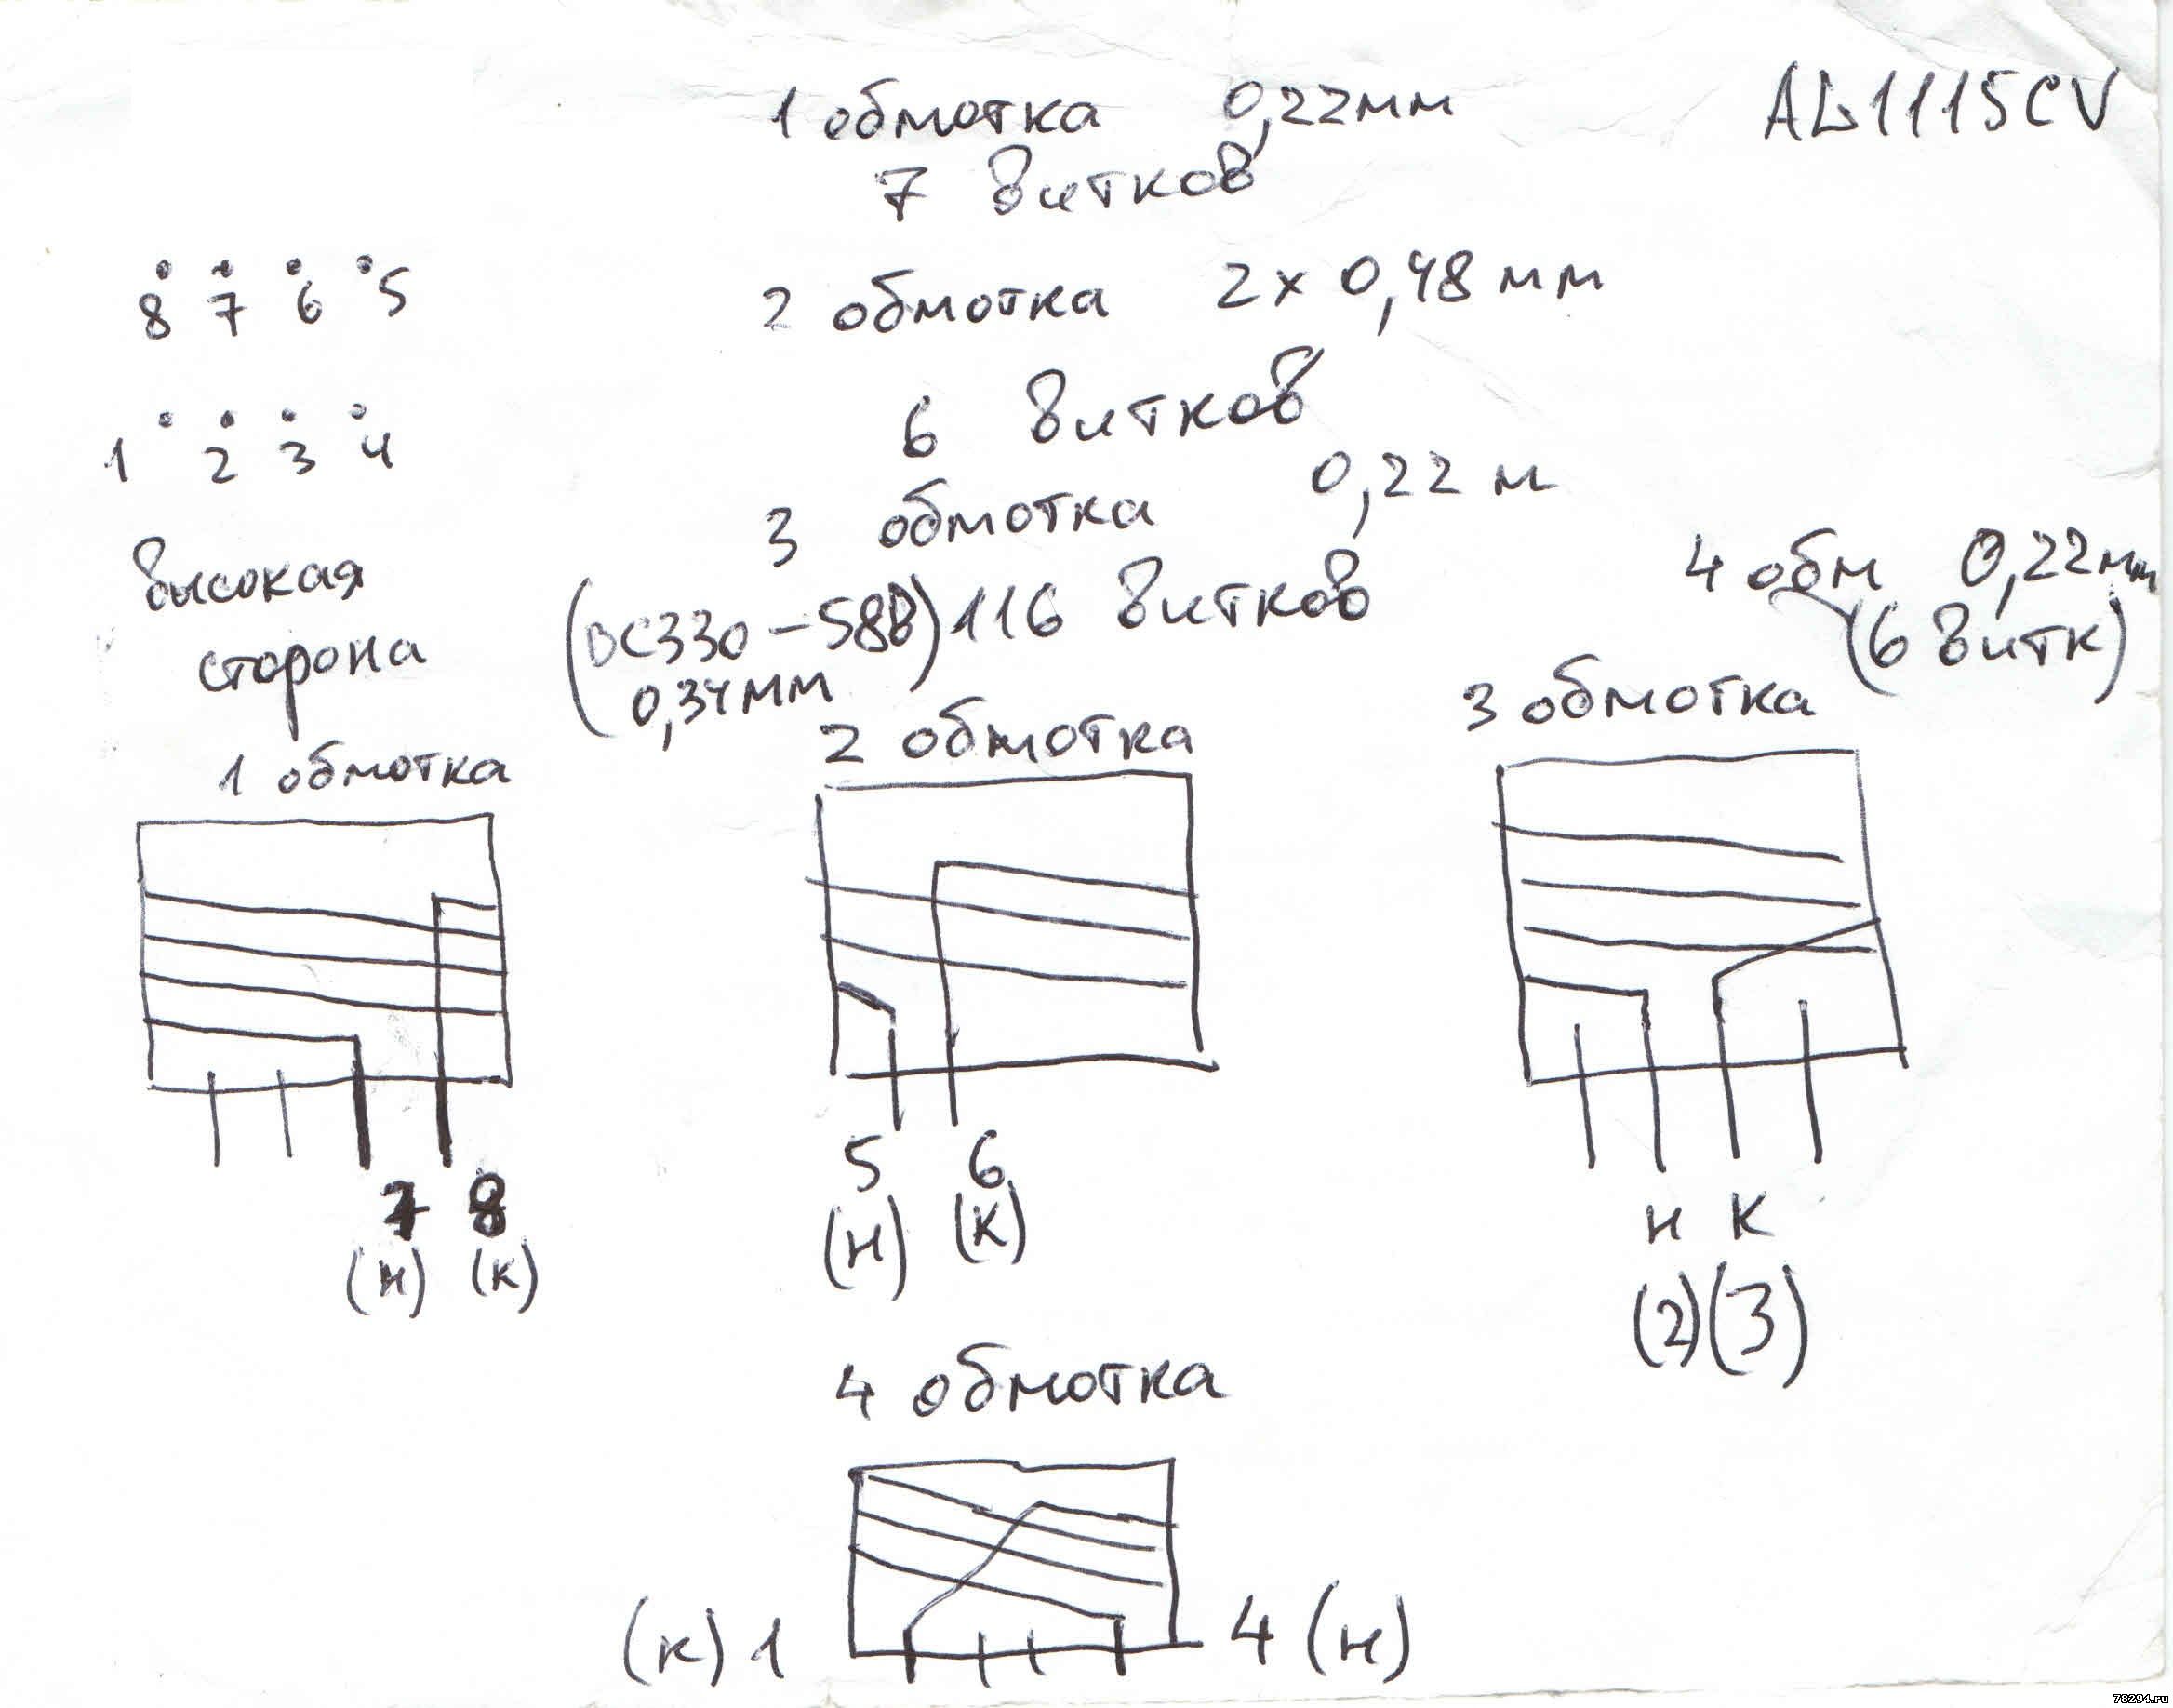 1 обмотка 0,22мм
AL1115CV
7 витков
8 7 6 5
2 обмотка 2 x 0,48 мм
1 2 3 4
6 витков
3 обмотка 0,22 м
высокая
сторона
(DC330-58В) 116 витков
0,34мм
4 обм 0,22мм
(6 витк)
1 обмотка
2 обмотка
3 обмотка
7 8
(н) (к)
5 6
(н) (к)
н к
(2) (3)
4 обмотка
(к) 1
4 (н)
78294.ru